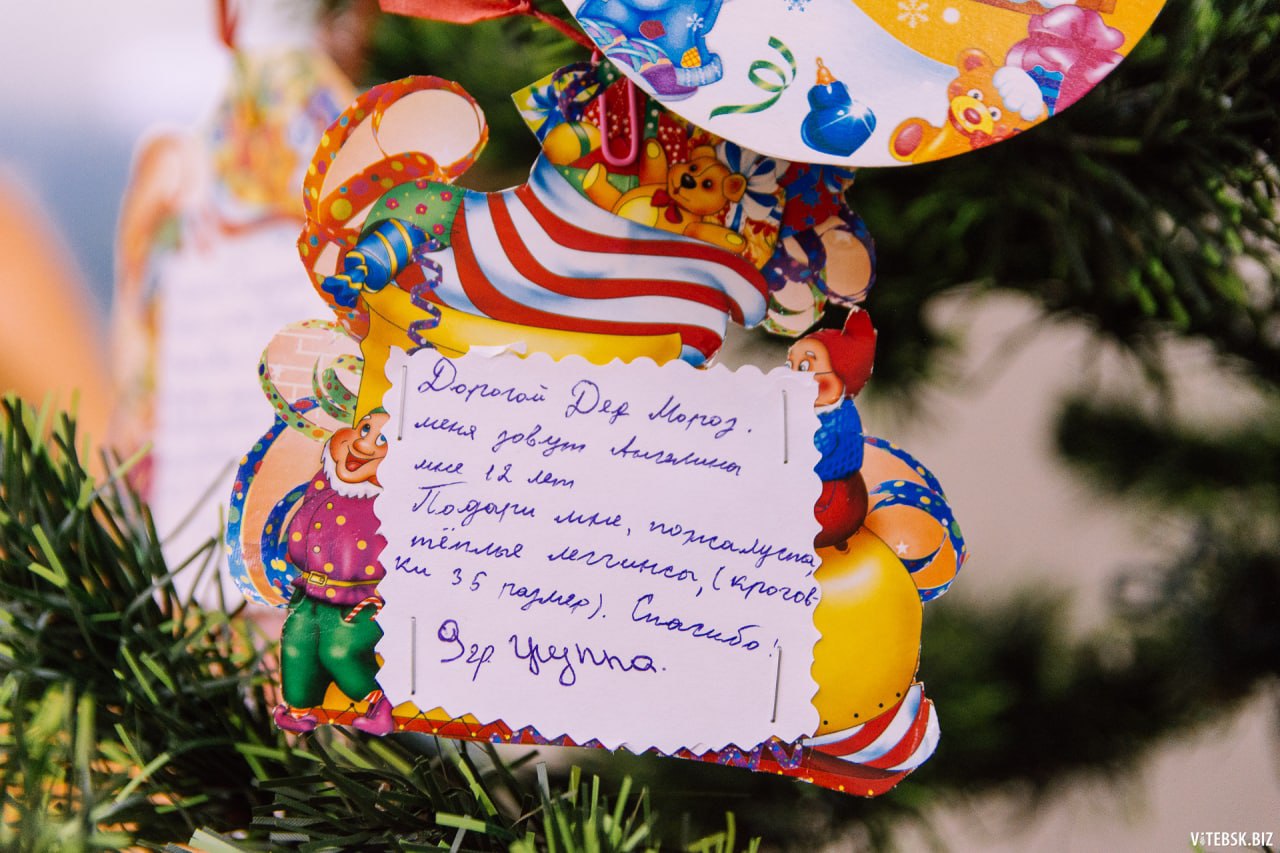 Дорогой Дед Мороз.
меня зовут Ангелина
мне 12 лет
Подари мне, пожалуйста,
тёплые леггинсы, (кроссов-
ки 35 размер). Спасибо!
9гр группа.
VITEBSK.BIZ